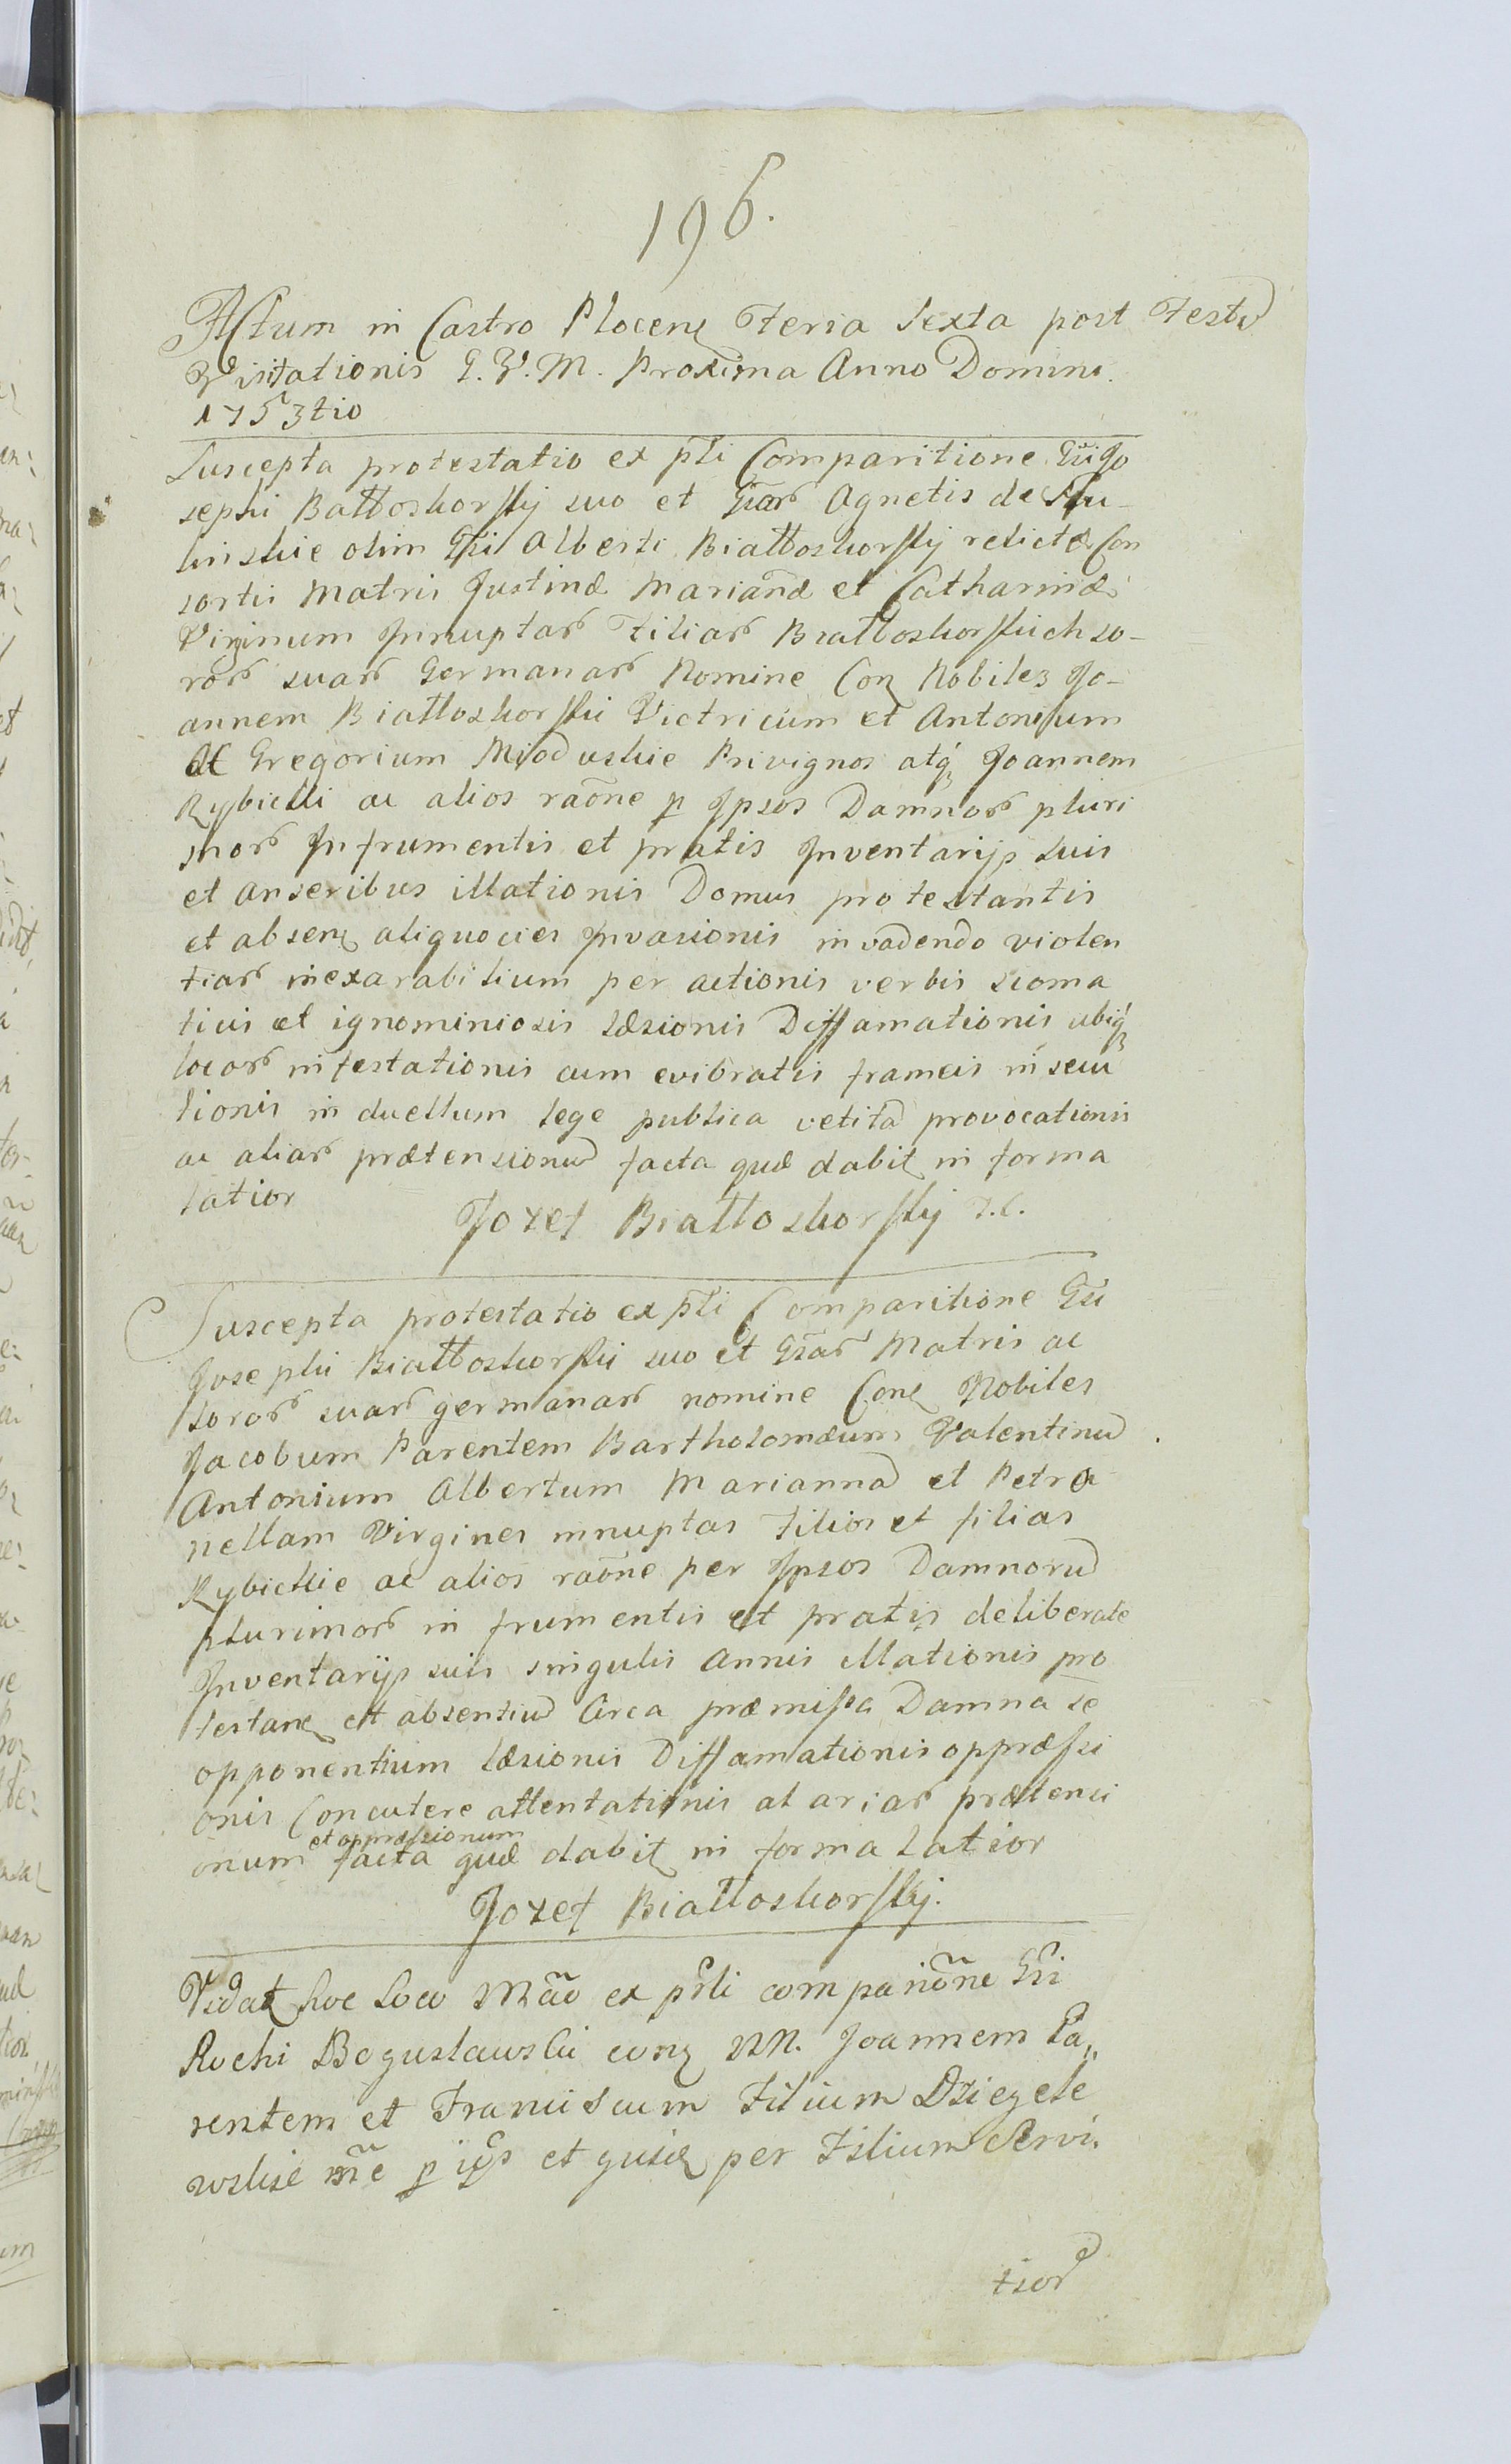 196.
Actum in Castro Plocenß Feria Sexta post Festu
Visitationis G. V. M. Proxima Anno Domini
1753tio
Suscepta protestatio ex pñti Comparitione Gñi Jo
sephi Białłoskorskij suo et Gñar Agnetis de
linskie olim Gñi Alberti Białłoskorskij relictæ Con
sortis Matris Justinæ Mariañæ et Catharinæ
Virginum Innuptar Filiar Białłoskorskich so-
ror suar Germanar Nomine Con Nobiles Jo-
annem Białłoskorskii Victricum et Antonium
ac Gregorium Mioduskie Privignos atq Joannem
Rybicki ac alios raõne p Ipsos Damnor pluri
mor In frumentis et pratis Inventarijs suis
et anseribus illationis Domus protestantis
et absenß aliquocies Invasionis invadendo violen
tiar inexarabilium per actionis verbis scoma
ticis et ignominiosis læsionis Diffamationis ubiq
locor infestationis cum evibratis frameis insecu
tionis in duellum lege publica vetita provocationis
ac aliar prætensionu facta quæ dabit in forma
latior
Jozef Białłoskorskij
Suscepta protestatio ex pñti Comparitione Gñi
Josephi Białłoskorskii suo et Gñar Matris ac
soror suar germanar nomine Con Nobiles
Jacobum Parentem Bartholomæum Valentinu
Antonium Albertum Marianna et Petro
nellam Virgines innuptas Filios et filias
Rybickie ac alios raõne per Ipsos Damnoru
plurimor in frumentis et pratis deliberate
Inventarijs suis singulis Annis illationis pro
testanß et absentiu Circa præmissa Damna se
opponentium læsionis Diffamationis oppræssi
onis Concutere attentationis at ariar prætensi
onum et oppræssionum facta quæ dabit in forma latior
Jozef Białłoskorskij.
Vidat hoc loco Mão ex pñti comparitiõne Gñi
Rochi Boguslawski con NN. Joannem Pa„
rentem et Franciscum Filium Dziegele
wskie rñe p ips et quidẽ per Filium Servi.
tior